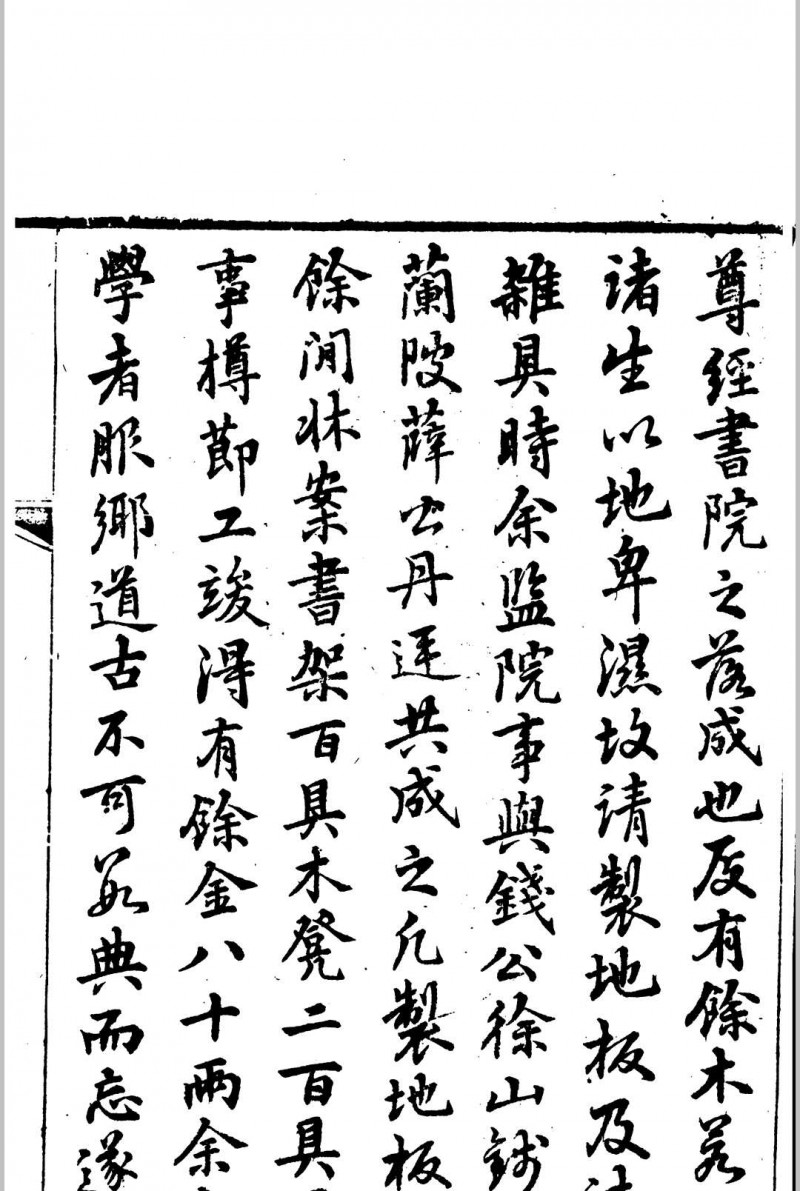 尊經書院之落成也廈有餘木若
諸生以地卑濕故請製地板及
雜具時余監院事與錢公徐山錢
蘭陂薛公丹廷共成之凡製地板
餘間牀案書架百具木凳二百具
事樽節工竣得有餘金八十兩余
學者服鄉道古不可數典而忘遂